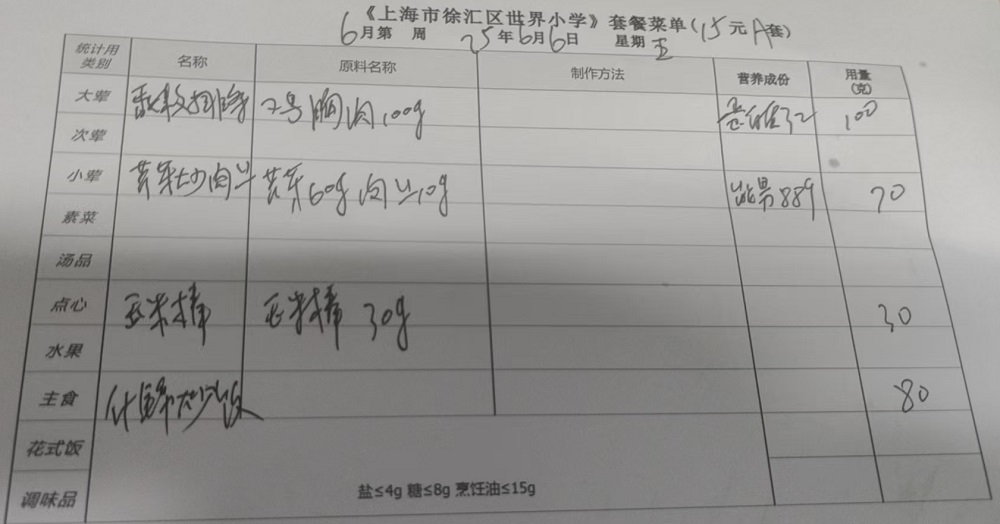 《上海市徐汇区世界小学》套餐菜单(15元A套)
6月第 周 25年6月6日 星期五
统计用类别 名称 原料名称 制作方法 营养成份 用量(克)
大荤 2号胸肉100g 100
次荤
小荤 炒肉丝 60g 肉丝10g 889 70
素菜
汤品
点心 玉米棒 玉米棒 30g 30
水果
主食 什锦炒饭 80
花式饭
调味品 盐≤4g 糖≤8g 烹饪油≤15g